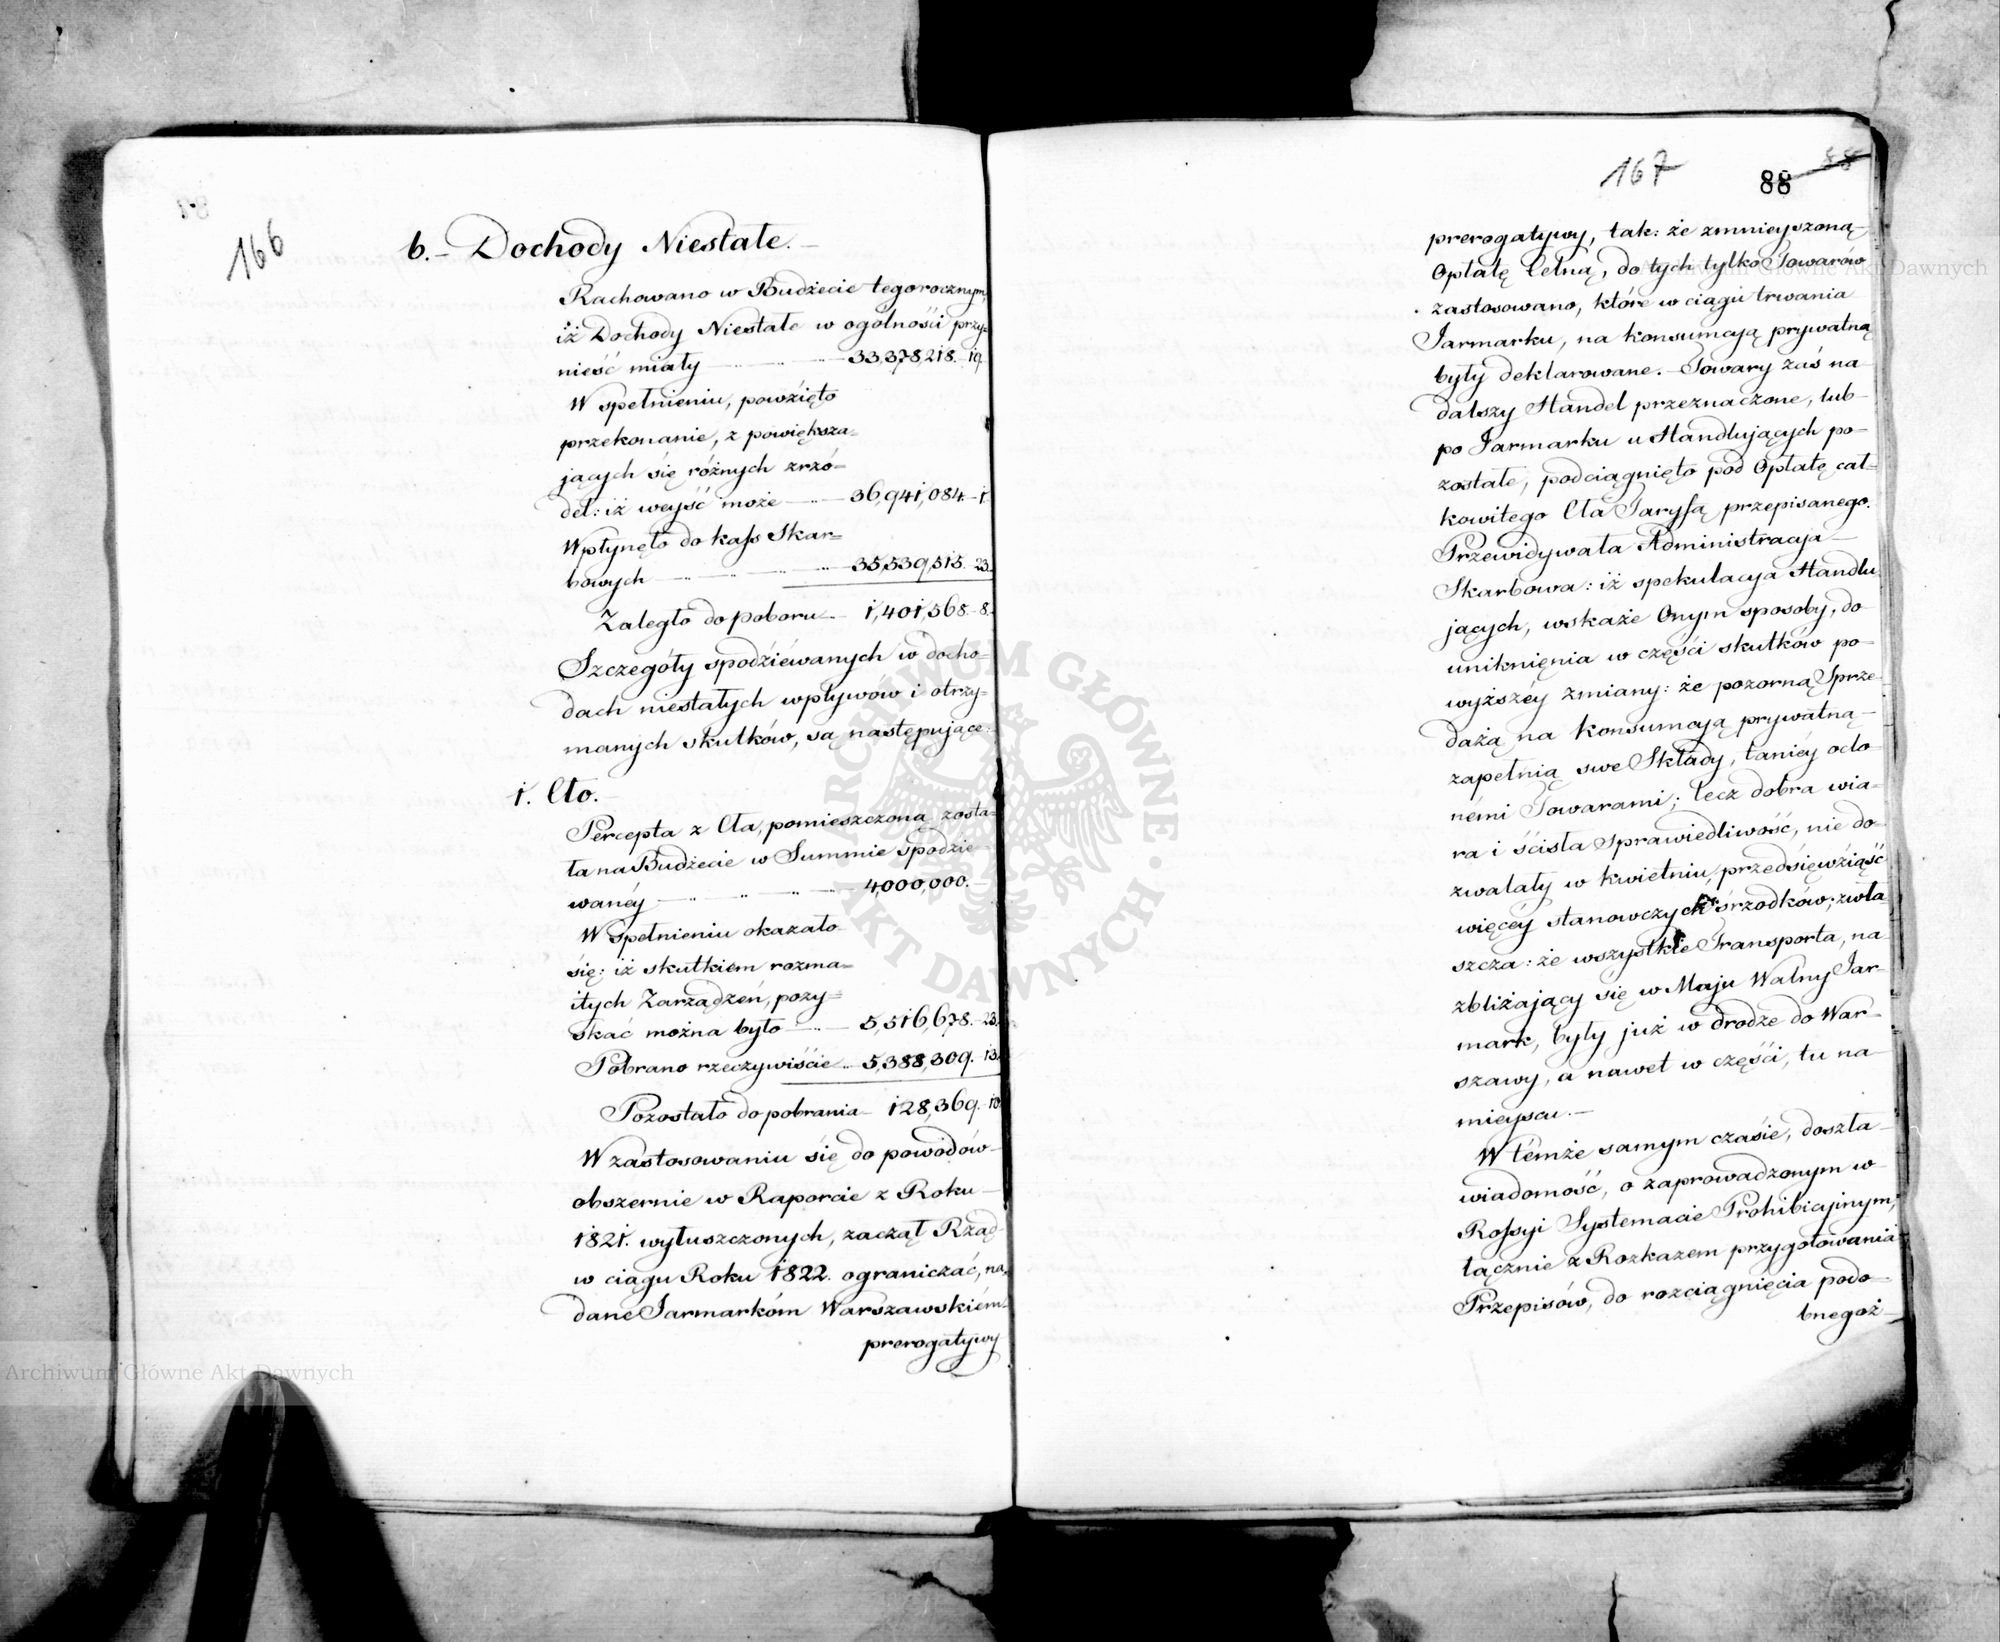 166
b.- Dochody Niestałe.-
Rachowano w Budżecie tegorocznym,
iż Dochody Niestałe w ogólności przy=
nieść miały 33,378,218.-19.
W spełnieniu, powzięto
przekonanie, z powiększa=
jących się różnych zrzó=
deł: iż weyść może 36,941,084.-1.
Wpłynęło do kass Skar=
bowych 35,539,515.-23.
Zaległo do poboru 1,401,568.-8.
Szczegóły spodziéwanych w docho=
dach niestałych wpływów i otrzy=
manych skutków, są następujące:
1. Cło.-
Percepta z Cła, pomieszczoną zosta=
ła na Budżecie w Summie spodzie
wanéy 4,000,000.-
W spełnieniu okazało
się: iż skutkiem rozma=
itych Zarządzeń, pozy=
skać można było 5,516,678.-23.
Pobrano rzeczywiście 5,388,309.-13.
Pozostało do pobrania 128,369.-10.
W zastosowaniu się do powodów
obszernie w Raporcie z Roku
1821. wyłuszczonych, zaczął Rząd
w ciągu Roku 1822. ograniczać, na=
dane Jarmarkóm Warszawskiém
prerogatywy
167
88
88
prerogatywy, tak: że zmnieyszoną
Opłatę Celną, do tych tylko Towarów
zastosowano, które w ciągu trwania
Jarmarku, na konsumcyą prywatną
były deklarowane.- Towary zaś na
dalszy Handel przeznaczone, lub
po Jarmarku u Handlujących po=
zostałe, podciągnięto pod Opłatę cał=
kowitego Cła Taryfą przepisanego.
Przewidywała Administracja
Skarbowa: iż spekulacya Handlu
jących, wskaże Onym sposoby, do
uniknięnia w części skutków po=
wyższéy zmiany: że pozorną Sprze=
dażą na konsumcyą prywatną
zapełnią swe Składy, taniéy oclo=
némi Towarami; lecz dobra wia=
ra i ścisła sprawiedliwość, nie do=
zwalały w kwietniu, przedsięwziąść
więcéy stanowczych śrzodków; zwła=
szcza: że wszystkie Transporta, na
zbliżający się w Maju Walny Jar=
mark, były już w drodze do War=
szawy, a nawet w części, tu na
mieyscu.-
W témże samym czasie, doszła
wiadomość, o zaprowadzonym w
Rossyi Systemacie Prohibicyjnym,
łącznie z Rozkazem przygotowania
Przepisów, do rozciągnięcia podo=
bnegoż
Archiwum Główne Akt Dawnych
Archiwum Główne Akt Dawnych
ARCHIWUM GŁÓWNE AKT DAWNYCH